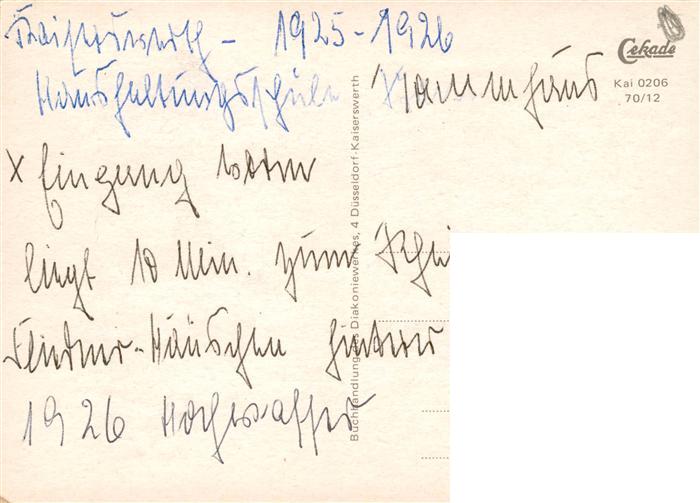 Kaiserswerth - 1925-1926
Haushaltungsschule Stammhaus
x Eingang
liegt 10 Min. zum
Fliedner-Häuschen hinterer
1926 Hochwasser
Cekade
Kai 0206
70/12
Buchhandlung des Diakoniewerkes, 4 Düsseldorf-Kaiserswerth